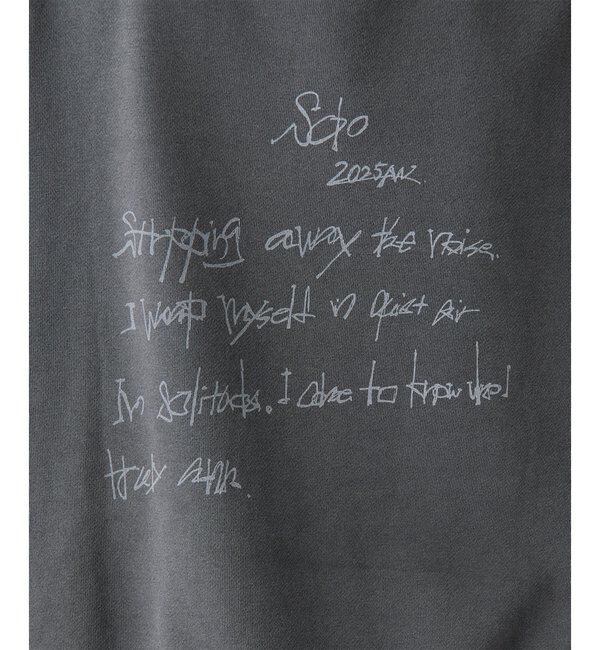 Solo
2025AW.
Stripping away the noise.
I wrap myself in quiet air
In solitude. I come to know who I
truly